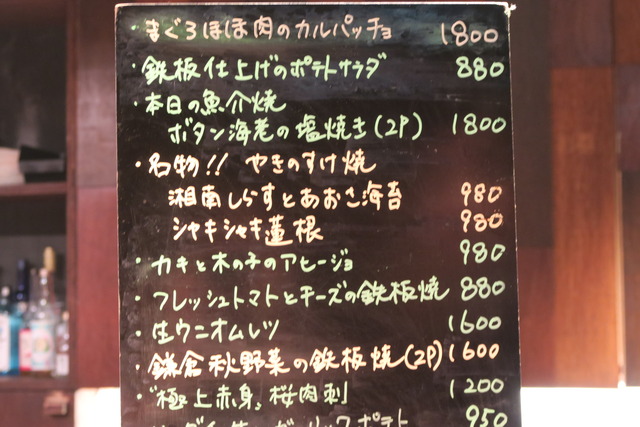 ・まぐろほほ肉のカルパッチョ 1800
・鉄板仕上げのポテトサラダ 880
・本日の魚介焼
ボタン海老の塩焼き(2P) 1800
・名物!! やきのすけ焼
湘南しらすとあおさ海苔 980
シャキシャキ蓮根 980
・カキと木の子のアヒージョ 980
・フレッシュトマトとチーズの鉄板焼 880
・生ウニオムレツ 1600
・鎌倉秋野菜の鉄板焼(2P) 1600
・"極上赤身" 桜肉刺 1200
ポテト 950